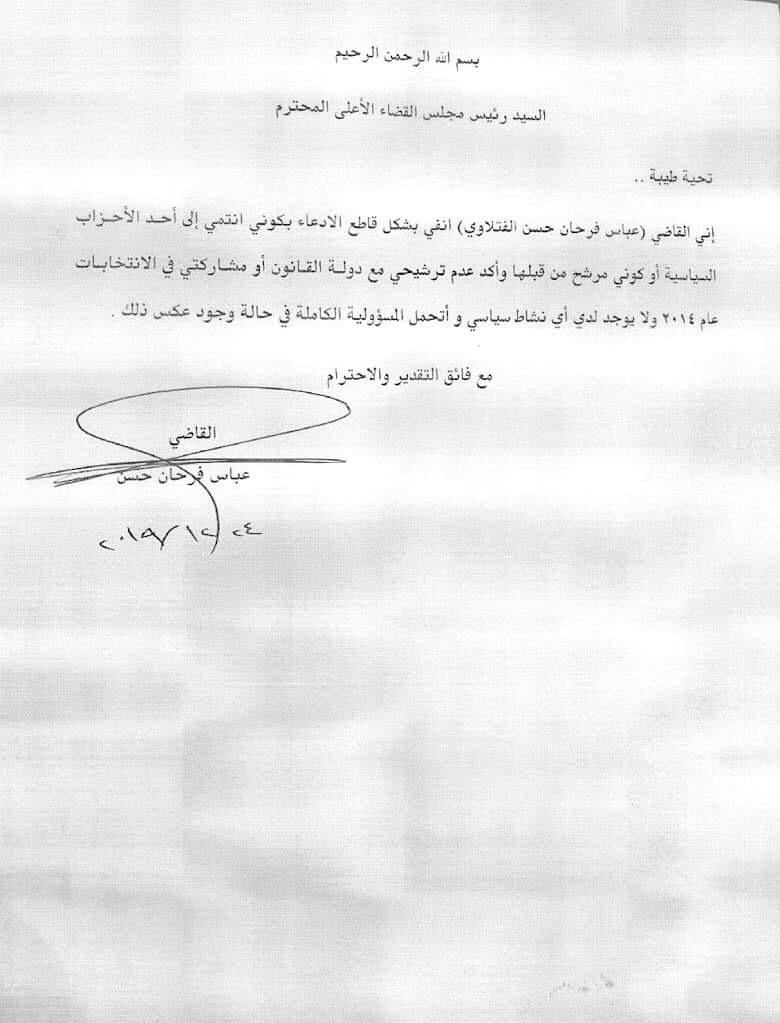 بسم الله الرحمن الرحيم
السيد رئيس مجلس القضاء الأعلى المحترم
تحية طيبة ..
إني القاضي (عباس فرحان حسن الفتلاوي) انفي بشكل قاطع الادعاء بكوني انتمي إلى أحد الأحزاب
السياسية أو كوني مرشح من قبلها وأكد عدم ترشيحي مع دولة القانون أو مشاركتي في الانتخابات
عام ٢٠١٤ ولا يوجد لدي أي نشاط سياسي و أتحمل المسؤولية الكاملة في حالة وجود عكس ذلك .
مع فائق التقدير والاحترام
القاضي
عباس فرحان حسن
٢٤ / ١٢ / ٢٠١٩